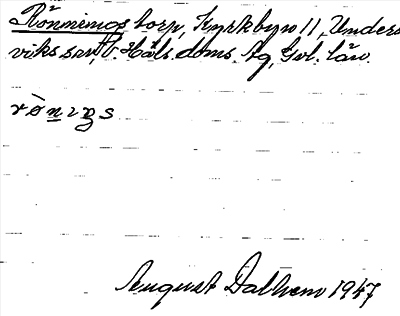 Rönningos torp, Kyrkbyn 11, Unders
viks sn, V. Häls. doms. Ag, Gvl. län.
rò̀nıgs
August Dalhem 1947